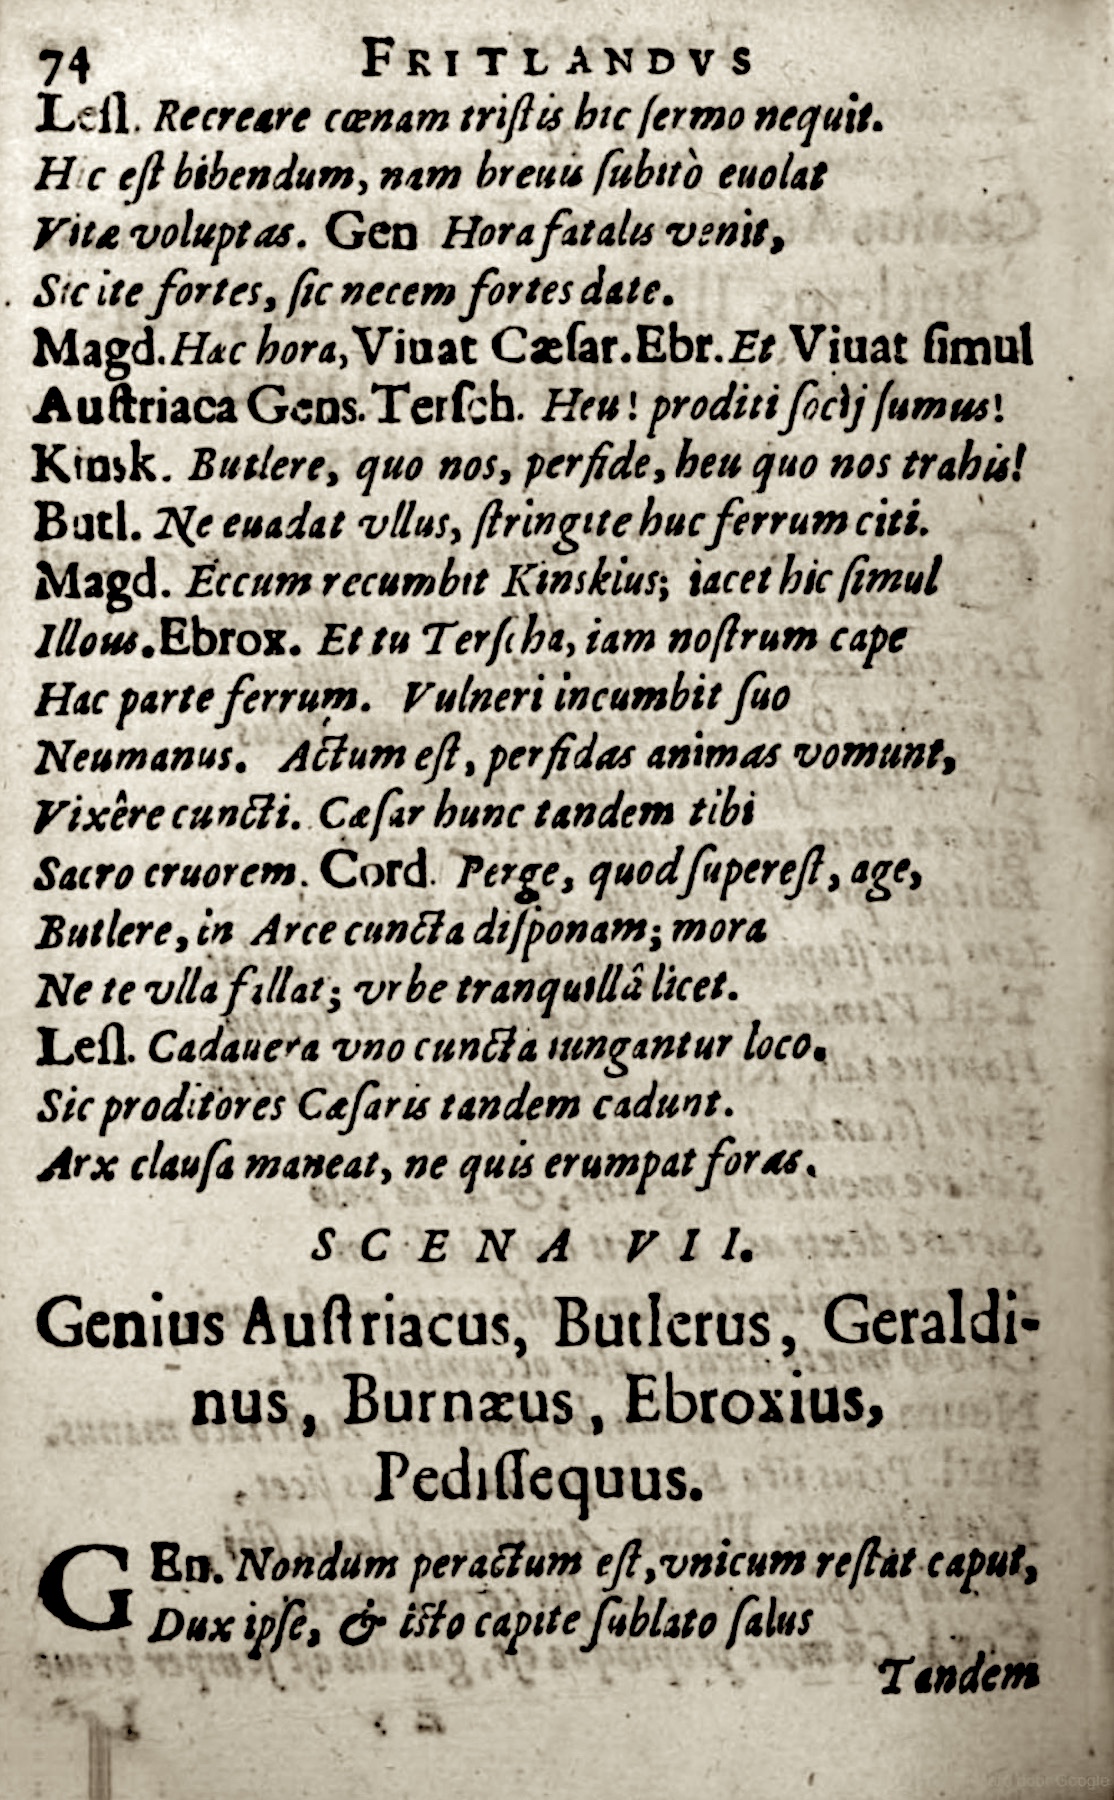 74 FRITLANDVS
Leſl. Recreare cœnam triſtis hic ſermo nequit.
Hic eſt bibendum, nam breuis ſubitò euolat
Vitæ voluptas. Gen Hora fatalis venit,
Sic ite fortes, ſic necem fortes date.
Magd. Hac hora, Viuat Cæſar. Ebr. Et Viuat ſimul
Auſtriaca Gens. Terſch. Heu! proditi ſocij ſumus!
Kinsk. Butlere, quo nos, perfide, heu quo nos trahis!
Butl. Ne euadat vllus, ſtringite huc ferrum citi.
Magd. Eccum recumbit Kinskius; iacet hic ſimul
Illous. Ebrox. Et tu Terſcha, iam noſtrum cape
Hac parte ferrum. Vulneri incumbit ſuo
Neumanus. Actum eſt, perfidas animas vomunt,
Vixêre cuncti. Cæſar hunc tandem tibi
Sacro cruorem. Cord. Perge, quod ſupereſt, age,
Butlere, in Arce cuncta diſponam; mora
Ne te vlla fallat; vrbe tranquillâ licet.
Leſl. Cadauera vno cuncta iungantur loco.
Sic proditores Cæſaris tandem cadunt.
Arx clauſa maneat, ne quis erumpat foras.
SCENA VII.
Genius Auſtriacus, Butlerus, Geraldi-
nus, Burnæus, Ebroxius,
Pediſſequus.
GEn. Nondum peractum eſt, vnicum reſtat caput,
Dux ipſe, & iſto capite ſublato ſalus
Tandem